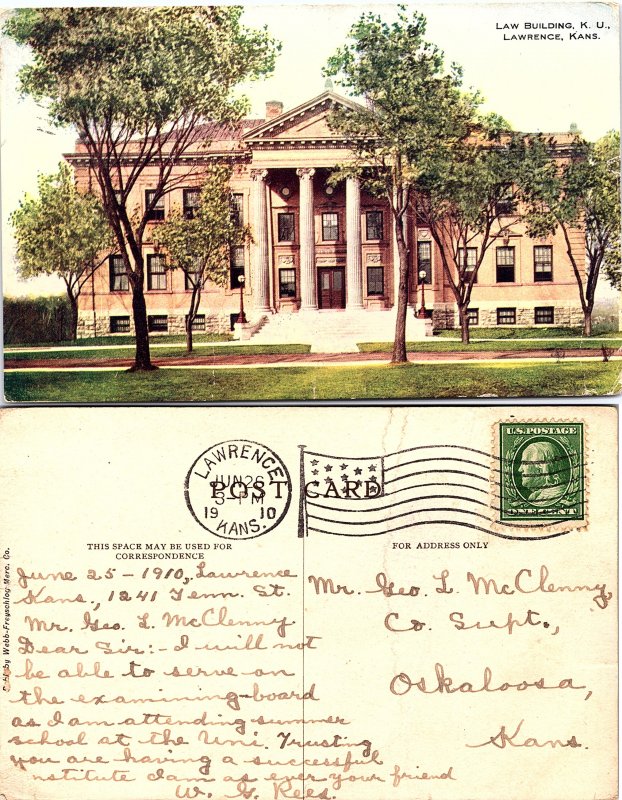 LAW BUILDING, K. U.,
LAWRENCE, KANS.
LAWRENCE
JUN 26
3 - PM
19 10
KANS.
POST CARD
U.S. POSTAGE
THIS SPACE MAY BE USED FOR
CORRESPONDENCE
FOR ADDRESS ONLY
by Webb-Freyschlag Merc. Co.
June 25 - 1910, Lawrence
Kans., 1241 Tenn. St.
Mr. Geo. L. McClenny
Dear Sir:- I will not
be able to serve on
the examining-board
as I am attending summer
school at the Uni. Trusting
you are having a successful
institute I am as ever your friend
W. G. Rees.
Mr. Geo. L. McClenny,
Co. Supt.,
Oskaloosa,
Kans.